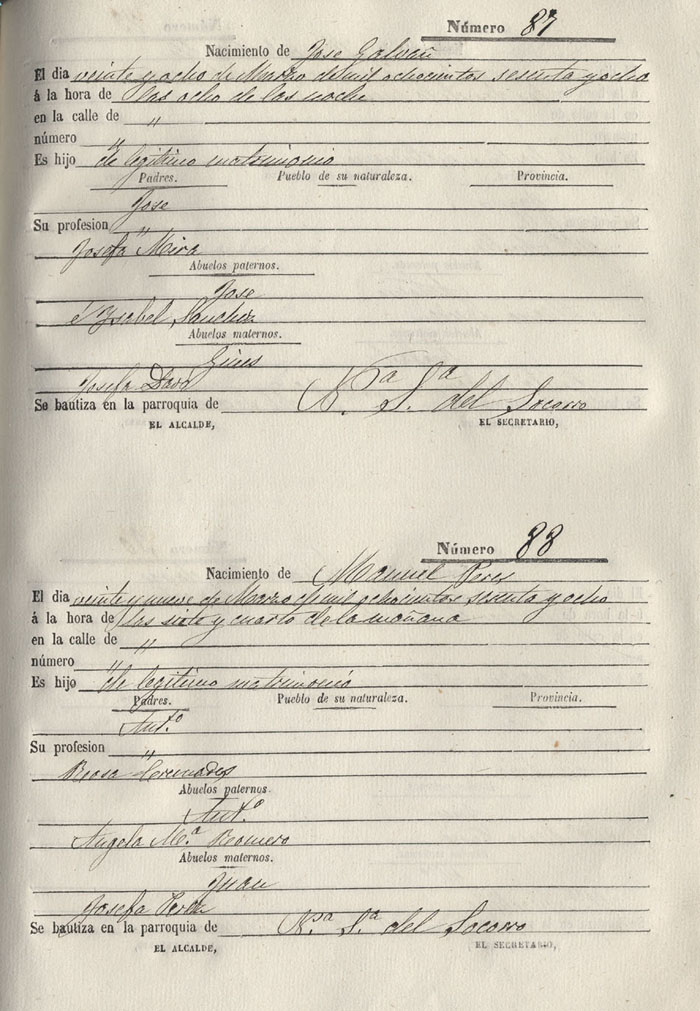 Número 87
Nacimiento de Jose Galvañ
El dia veinte y ocho de Marzo de mil ochocientos sesenta y ocho
á la hora de las ocho de las noche
en la calle de "
número "
Es hijo de legitimo matrimonio
Padres. Pueblo de su naturaleza. Provincia.
Jose
Su profesion "
Josefa Mira
Abuelos paternos.
Jose
é Ysabel Sanchiz
Abuelos maternos.
Gines
Josefa Davó
Se bautiza en la parroquia de N.ª S.ª del Socorro
EL ALCALDE, EL SECRETARIO,
Número 88
Nacimiento de Manuel Peres
El dia veinte y nueve de Marzo de mil ochocientos sesenta y ocho
á la hora de las siete y cuarto de la mañana
en la calle de "
número "
Es hijo de legitimo matrimonio
Padres. Pueblo de su naturaleza. Provincia.
Ant.º
Su profesion "
Rosa Cremades
Abuelos paternos.
Ant.º
Angela M.ª Romero
Abuelos maternos.
Juan
Josefa
Se bautiza en la parroquia de N.ra S.ª del Socorro
EL ALCALDE, EL SECRETARIO,